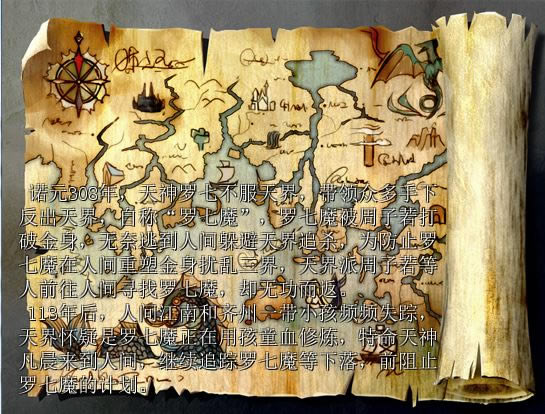 诺元303年，天神罗七不服天界，带领众多手下
反出天界，自称“罗七魔”，罗七魔被周子若打
破金身，无奈逃到人间躲避天界追杀，为防止罗
七魔在人间重塑金身扰乱三界，天界派周子若等
人前往人间寻找罗七魔，却无功而返。
113年后，人间江南和齐州一带小孩频频失踪，
天界怀疑是罗七魔正在用孩童血修炼，特命天神
凡晨来到人间，继续追踪罗七魔等下落，前阻止
罗七魔的计划。